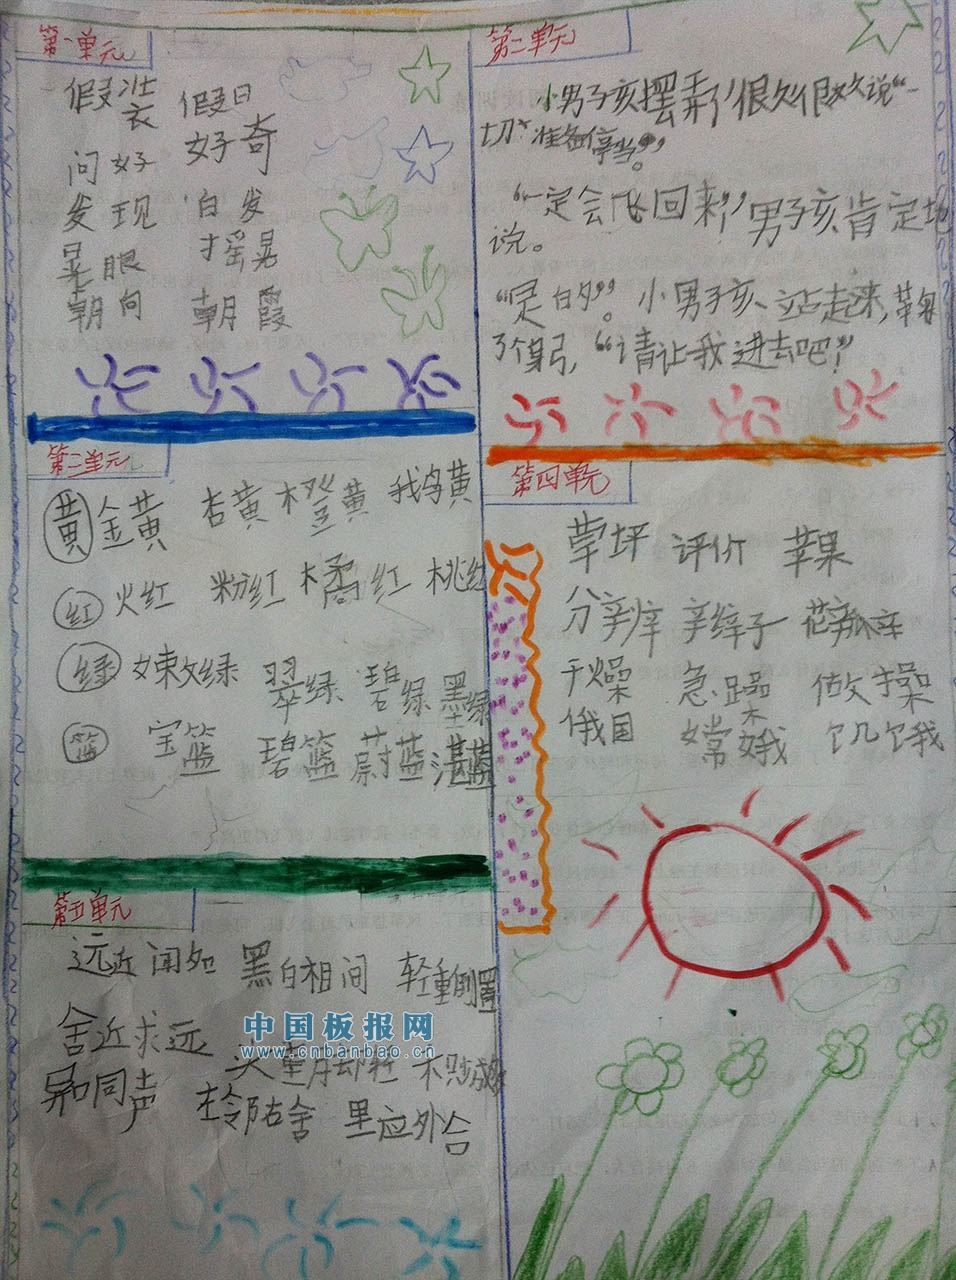 第一单元
假装 假日
问好 好奇
发现 白发
晃眼 摇晃
朝向 朝霞
第二单元
黄 金黄 杏黄 橙黄 鹅黄
红 火红 粉红 橘红 桃红
绿 嫩绿 翠绿 碧绿 墨绿
篮 宝篮 碧篮 蔚蓝 湛蓝
第三单元
小男子孩摆弄了很久很久说“一
切准备停当”。
“一定会飞回来”男子孩肯定地
说。
“是的”。小男子孩站起来,鞠
了个躬,“请让我进去吧!”
第四单元
草坪 评价 苹果
分辨 辫子 花瓣
干燥 急躁 做操
俄国 嫦娥 饥饿
第五单元
远近闻名 黑白相间 轻重倒置
舍近求远 头重脚轻 不计成败
异口同声 左邻右舍 里应外合
中国板报网
www.cnbanbao.cn